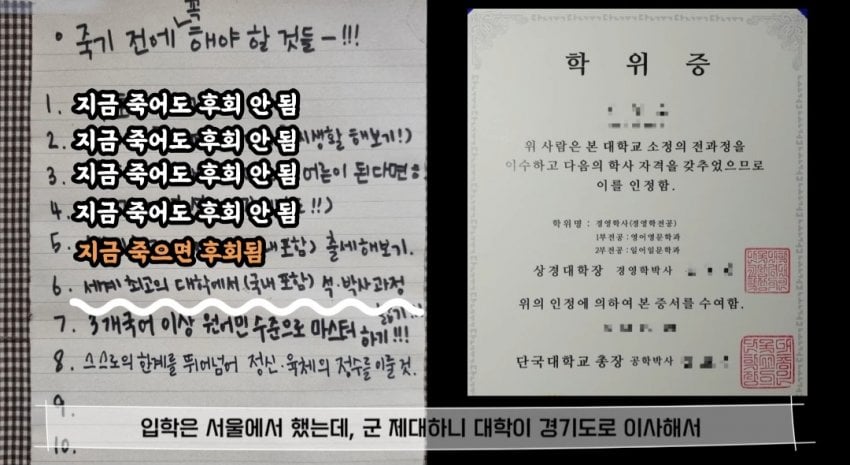 • 죽기 전에 꼭 해야 할 것들 - !!!
1. 지금 죽어도 후회 안 됨
2. 지금 죽어도 후회 안 됨 해보기!)
3. 지금 죽어도 후회 안 됨 어른이 된다면
4. 지금 죽어도 후회 안 됨 !!)
5. 지금 죽으면 후회됨 포함) 출세해보기.
6. 세계 최고의 대학에서 (국내 포함) 석·박사과정
밟기!!!
7. 3개국어 이상 원어민 수준으로 마스터 하기!!!
8. 스스로의 한계를 뛰어넘어 정신·육체의 정수를 이룰 것.
9.
10.
학위증
위 사람은 본 대학교 소정의 전과정을
이수하고 다음의 학사 자격을 갖추었으므로
이를 인정함.
학위명 : 경영학사(경영학전공)
1부전공 : 영어영문학과
2부전공 : 일어일문학과
상경대학장 경영학박사
위의 인정에 의하여 본 증서를 수여함.
단국대학교 총장 공학박사
입학은 서울에서 했는데, 군 제대하니 대학이 경기도로 이사해서